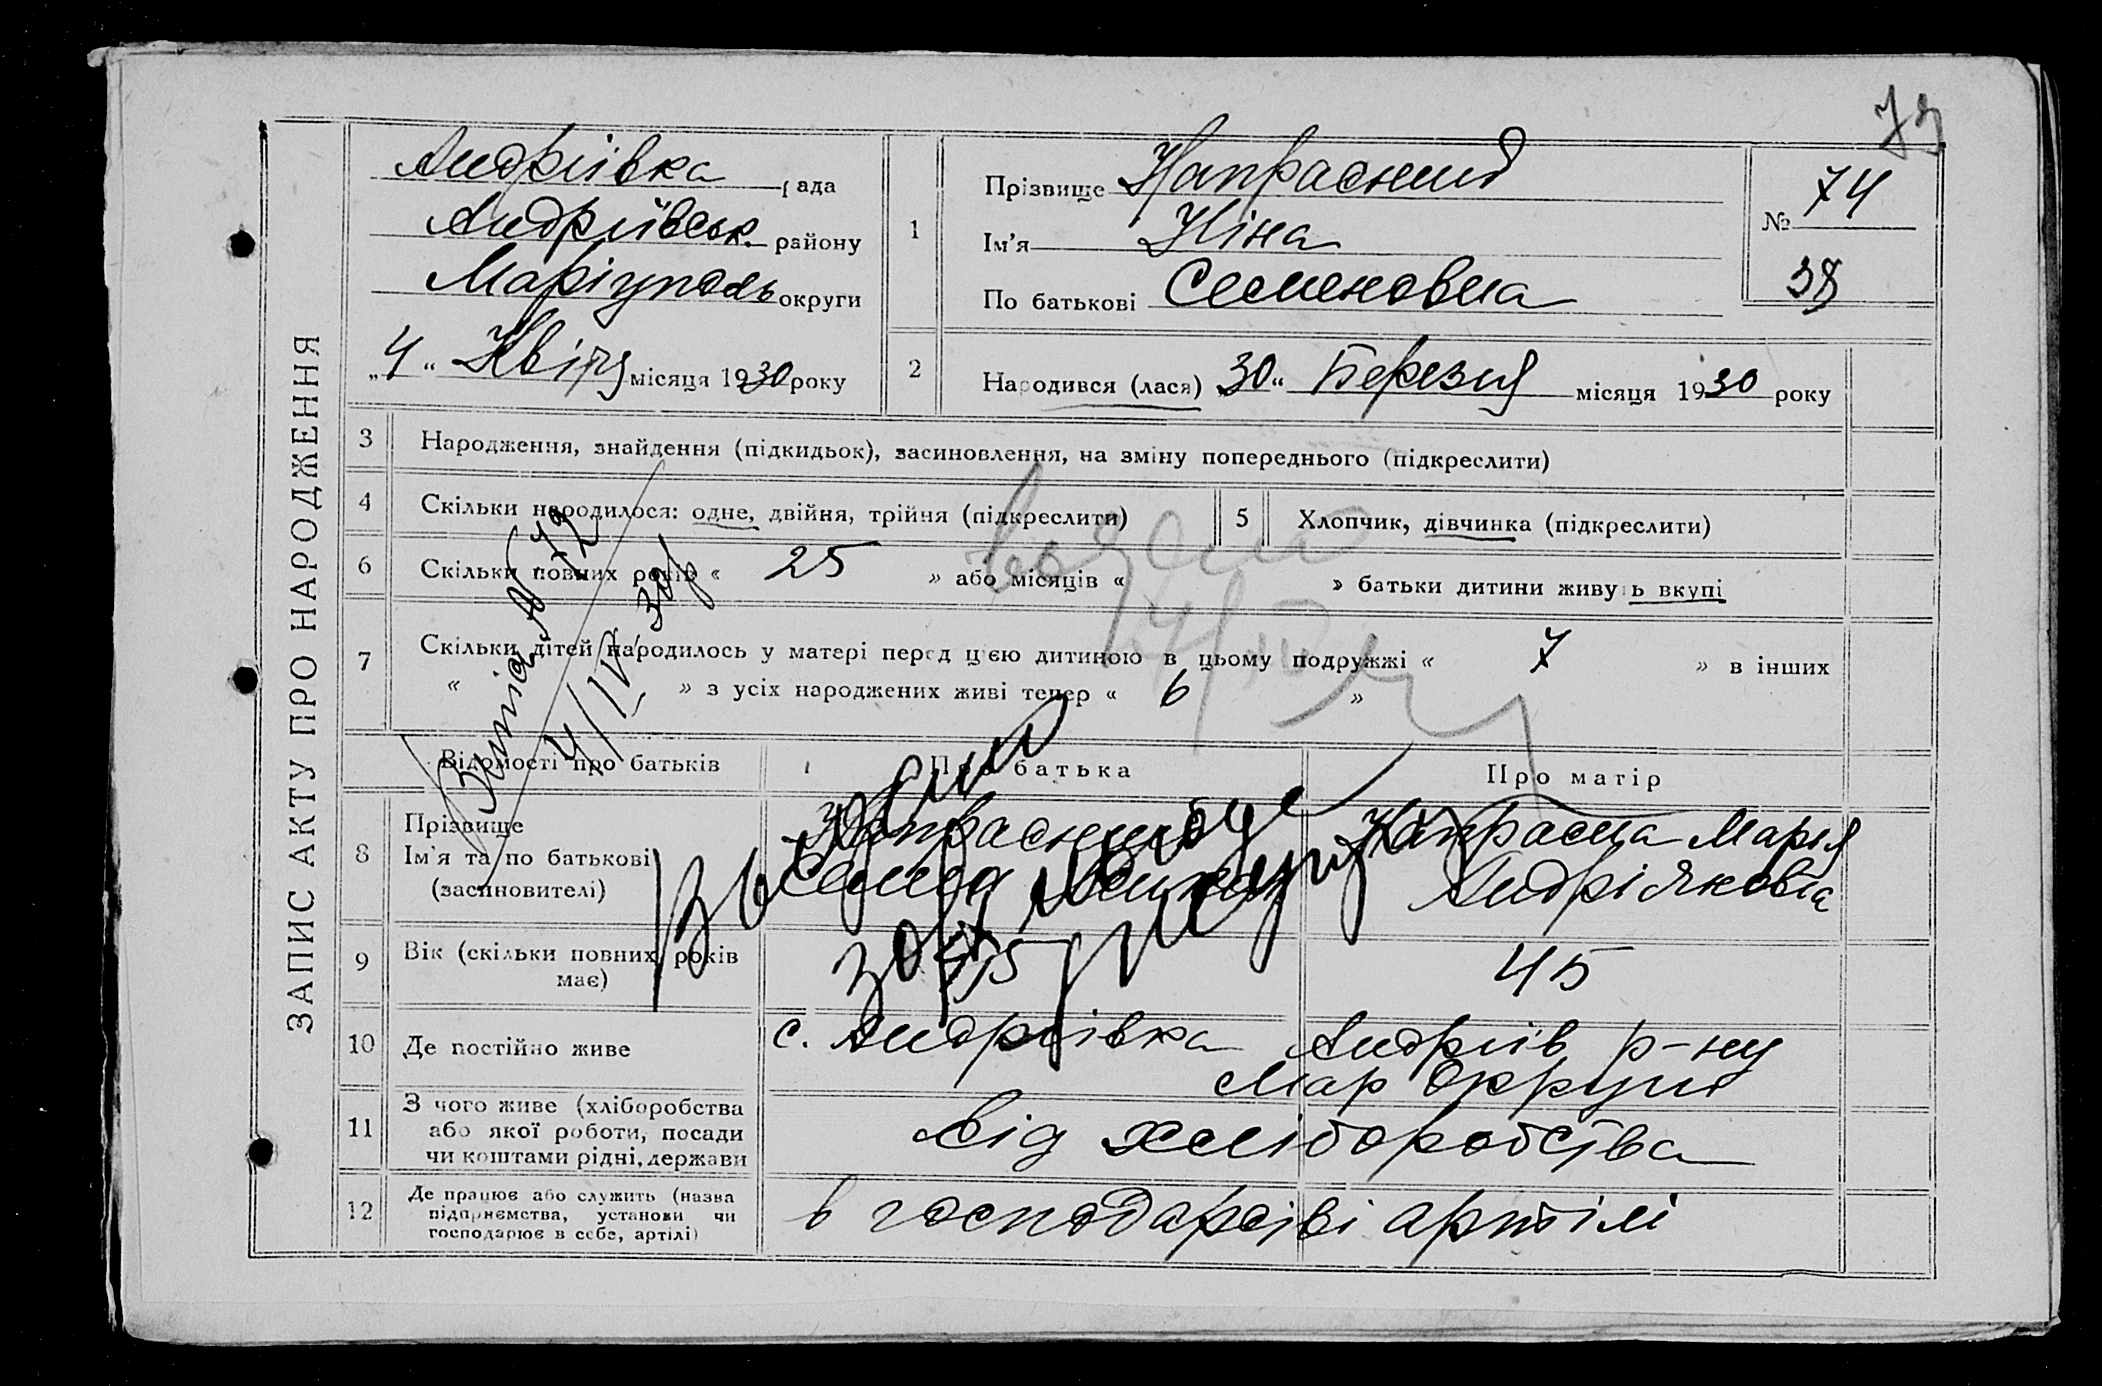 79
ЗАПИС АКТУ ПРО НАРОДЖЕННЯ
Андріївка рада
Андріївськ. району
Маріуполь округи
„4“ Квітня місяця 1930 року
1
Прізвище Напрасний
Ім'я Ніна
По батькові Семеновна
№ 74
38
2
Народився (лася) 30“ Березня місяця 1930 року
3 Народження, знайдення (підкидьок), засиновлення, на зміну попереднього (підкреслити)
4 Скільки народилося: одне, двійня, трійня (підкреслити)
5 Хлопчик, дівчинка (підкреслити)
6 Скільки повних років « 25 » або місяців « » батьки дитини живуть вкупі
7 Скільки дітей народилось у матері перед цією дитиною в цьому подружжі « 7 » в інших
« » з усіх народжених живі тепер « 6 »
4/IV 30
Відомості про батьків
Про батька
Про матір
8 Прізвище
Ім'я та по батькові
(засиновителі)
Напрасний
Семен
Напрасна Марія
Андріяновна
9 Вік (скільки повних років
має)
45
10 Де постійно живе
с. Андріївка Андріїв р-ну
Мар округи
11 З чого живе (хліборобства
або якої роботи, посади
чи коштами рідні, держави
від хліборобства
12 Де працює або служить (назва
підприємства, установи чи
господарює в себе, артілі)
в господарстві артілі